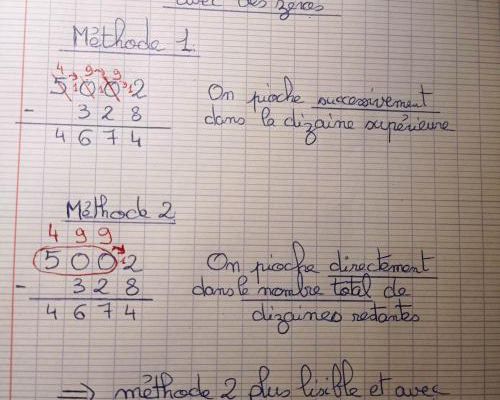 avec des zéros
Méthode 1
4 9 9
5 0 0 2
- 3 2 8
4 6 7 4
On pioche successivement
dans la dizaine supérieure
Méthode 2
4 9 9
5 0 0 2
- 3 2 8
4 6 7 4
On pioche directement
dans le nombre total de
dizaines restantes
⇒ méthode 2 plus lisible et avec